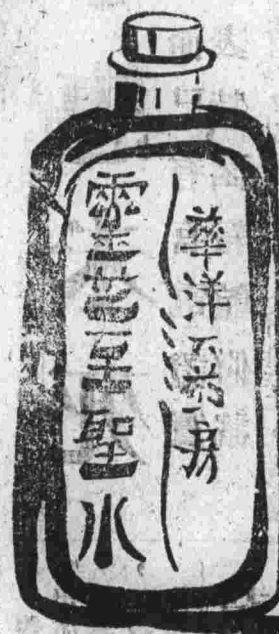 華洋藥房
靈芝至聖水